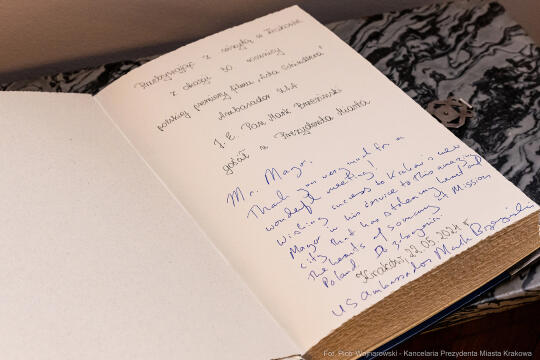 Przebywając z wizytą w Krakowie
z okazji 30 rocznicy
polskiej premiery filmu „Lista Schindlera"
Ambasador USA
J. E. Pan Mark Brzezinski
gość u Prezydenta Miasta
Mr. Mayor,
Thank you very much for a
wonderful meeting!
Wishing success to Krakow's new
Mayor in his service to this amazing
city that has stolen my heart and
the hearts of so many at Mission
Poland.
Kraków, 22.05.2024 r.
US Ambassador Mark Brzezinski
Fot. Piotr Wojnarowski - Kancelaria Prezydenta Miasta Krakowa